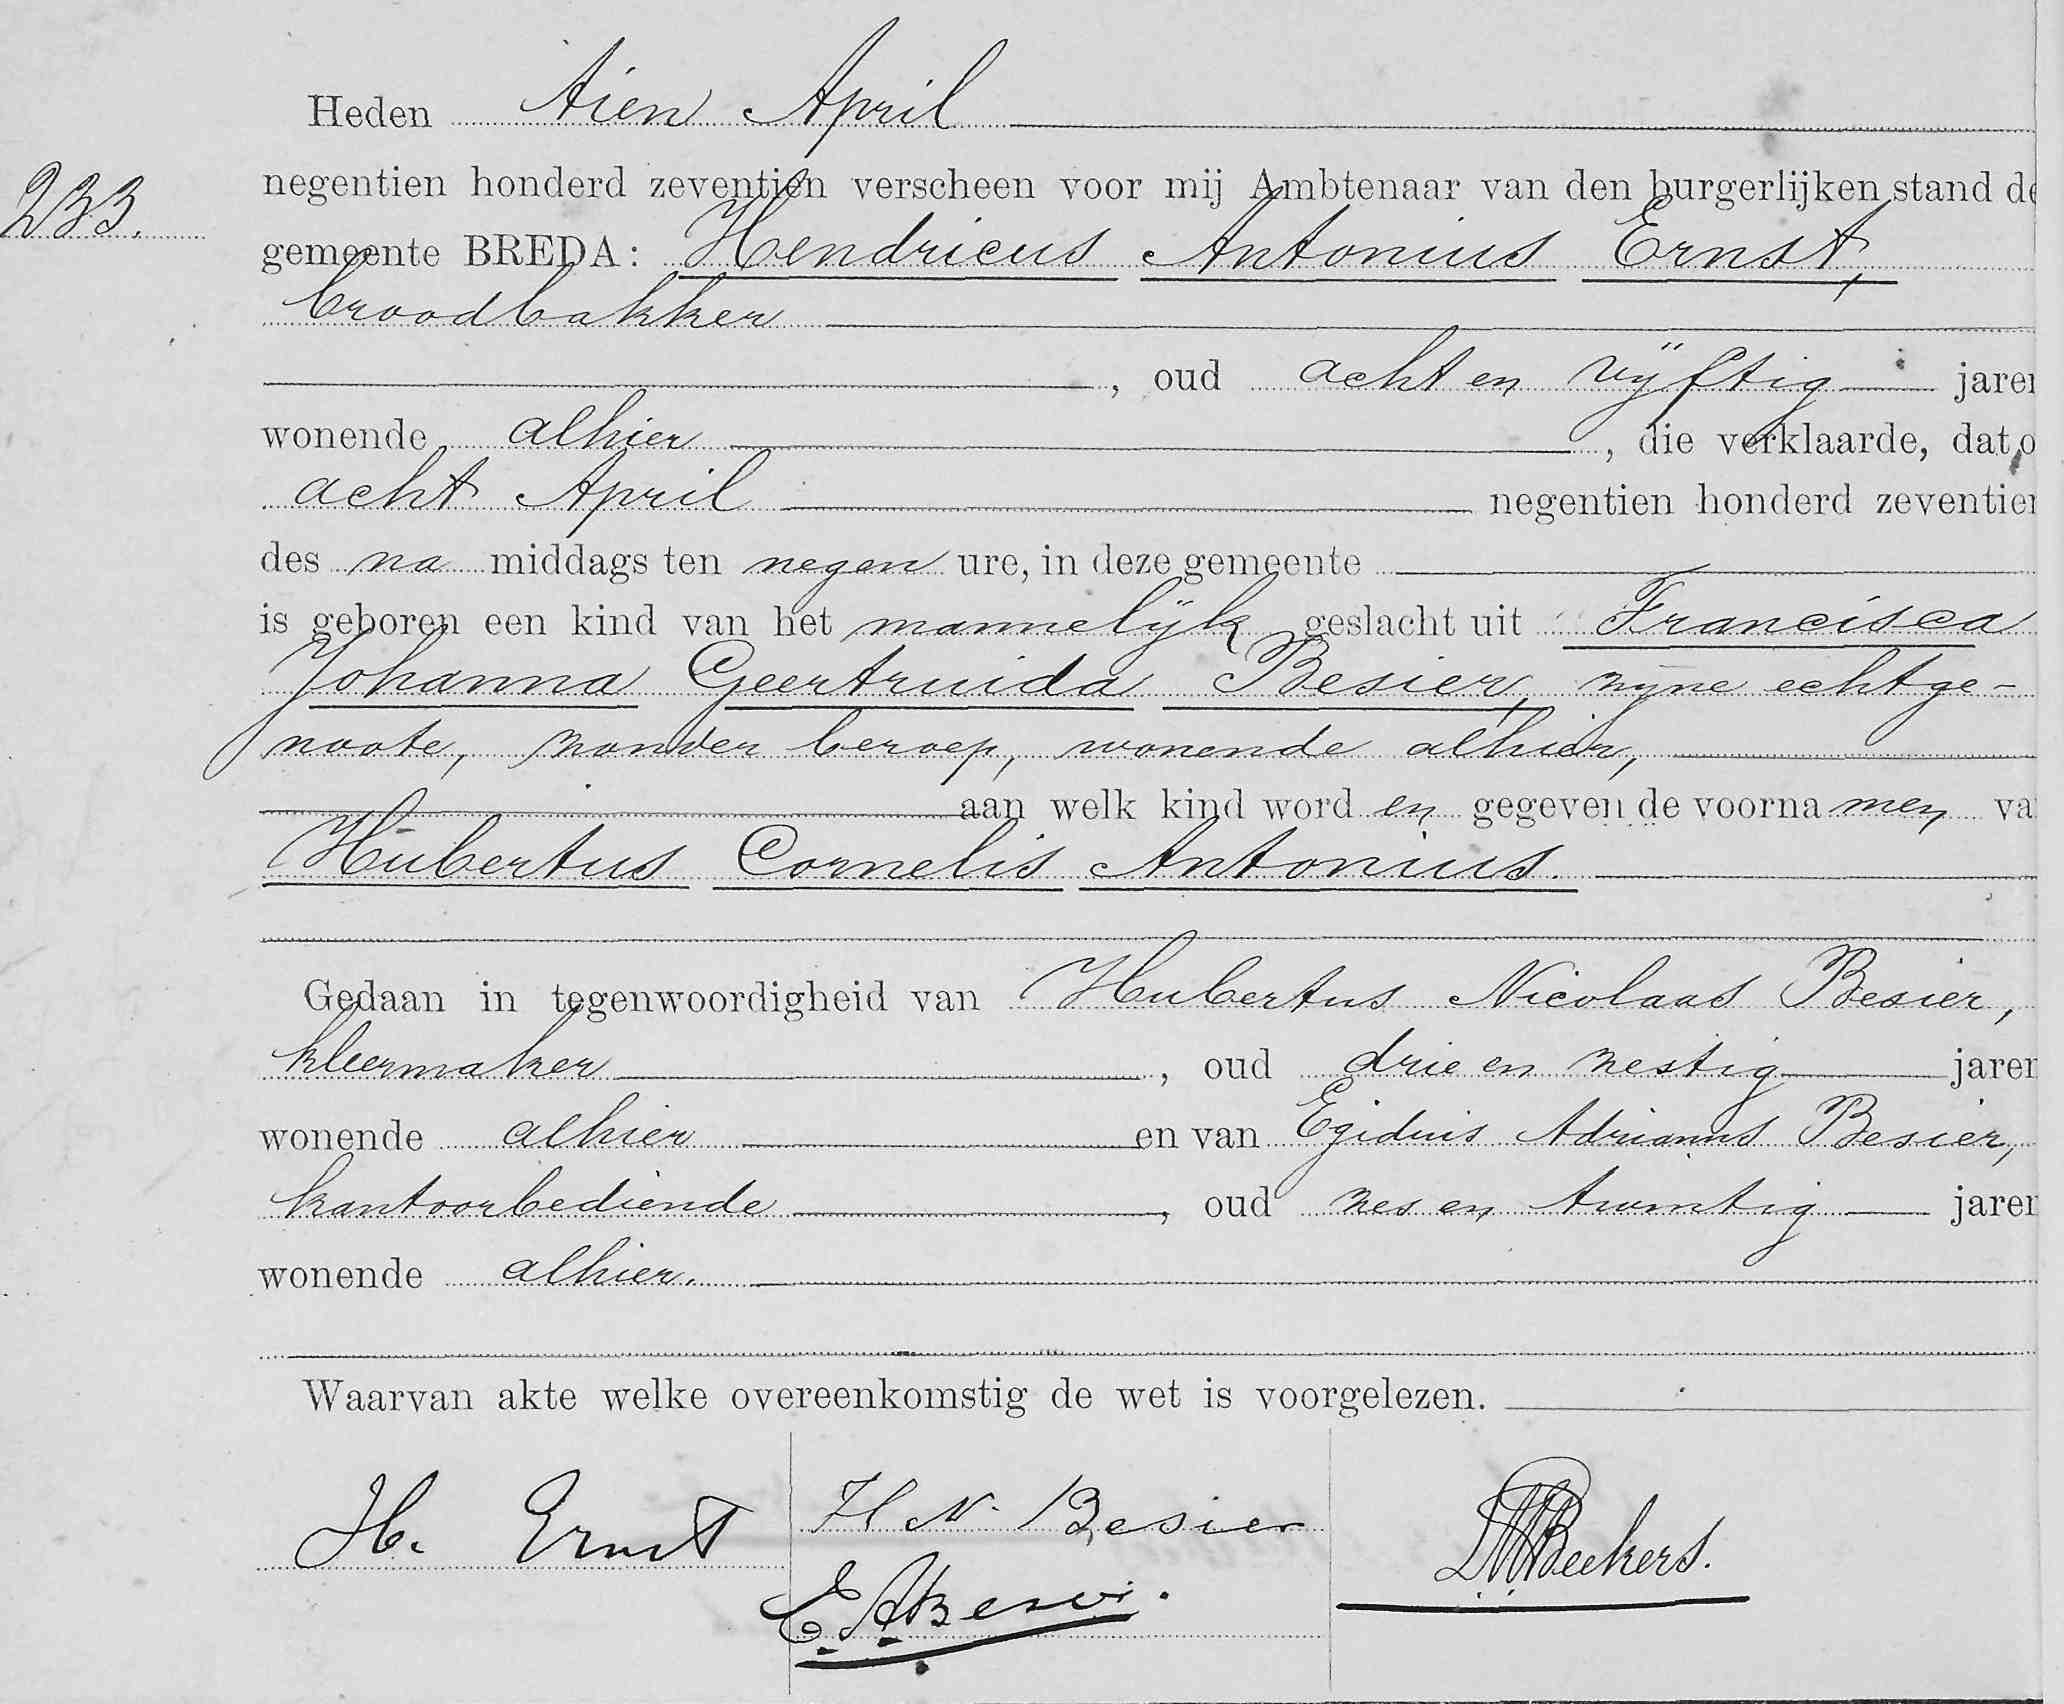 Heden tien April
233.
negentien honderd zeventien verscheen voor mij Ambtenaar van den burgerlijken stand de
gemeente BREDA: Hendricus Antonius Ernst,
broodbakker
, oud acht en vijftig jaren
wonende alhier , die verklaarde, dat o
acht April negentien honderd zeventien
des na middags ten negen ure, in deze gemeente
is geboren een kind van het mannelijk geslacht uit Francisca
Johanna Geertruida Besier, zijne echtge-
noote, zonder beroep, wonende alhier,
aan welk kind word en gegeven de voorna men va
Hubertus Cornelis Antonius.
Gedaan in tegenwoordigheid van Hubertus Nicolaas Besier,
kleermaker , oud drie en zestig jaren
wonende alhier en van Egidius Adrianus Besier,
kantoorbediende , oud zes en twintig jaren
wonende alhier.
Waarvan akte welke overeenkomstig de wet is voorgelezen.
H. Ernst
H N. Besier
E A Besier.
Beekers.